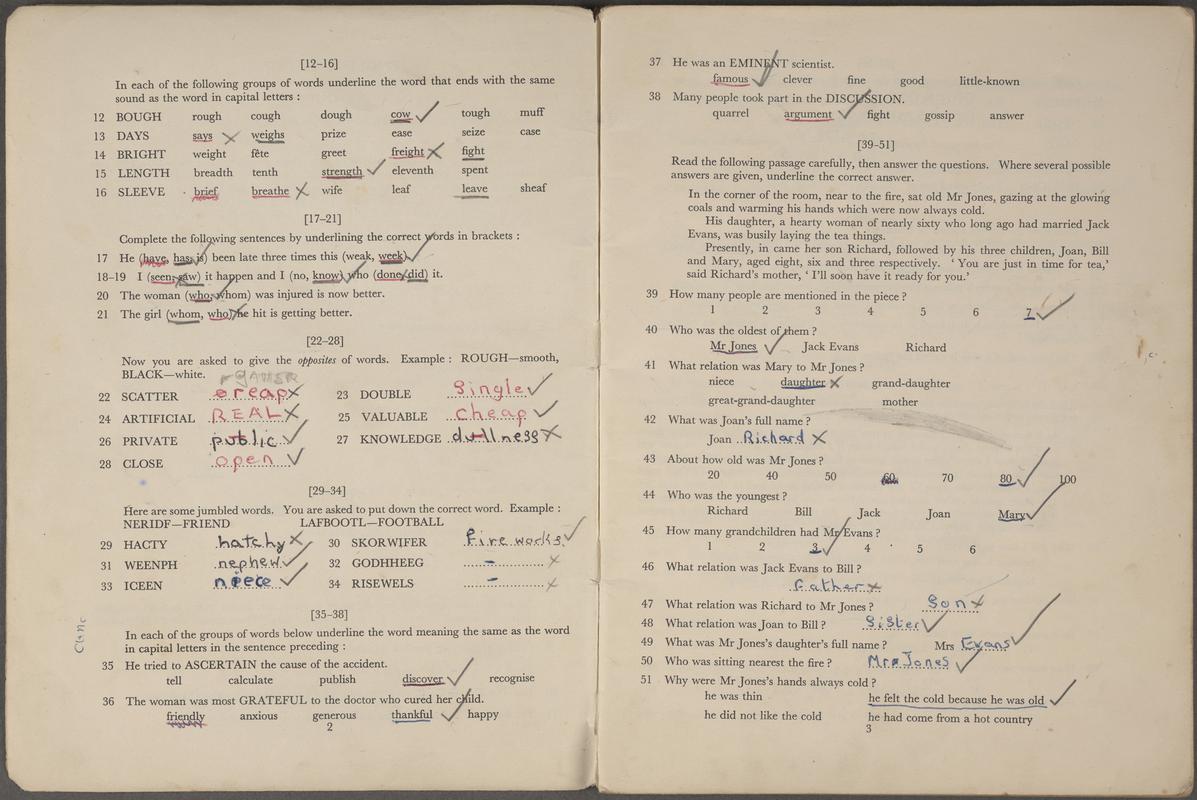 [12-16]
In each of the following groups of words underline the word that ends with the same
sound as the word in capital letters :
12 BOUGH rough cough dough cow tough muff
13 DAYS says weighs prize ease seize case
14 BRIGHT weight fête greet freight fight
15 LENGTH breadth tenth strength eleventh spent
16 SLEEVE brief breathe wife leaf leave sheaf
[17-21]
Complete the following sentences by underlining the correct words in brackets :
17 He (have, has, is) been late three times this (weak, week).
18-19 I (seen, saw) it happen and I (no, know) who (done, did) it.
20 The woman (who, whom) was injured is now better.
21 The girl (whom, who) he hit is getting better.
[22-28]
Now you are asked to give the opposites of words. Example : ROUGH—smooth,
BLACK—white.
22 SCATTER reap 23 DOUBLE Single
24 ARTIFICIAL REAL 25 VALUABLE Cheap
26 PRIVATE public 27 KNOWLEDGE dullness
28 CLOSE open
[29-34]
Here are some jumbled words. You are asked to put down the correct word. Example :
NERIDF—FRIEND LAFBOOTL—FOOTBALL
29 HACTY hatchy 30 SKORWIFER fire works
31 WEENPH nephew 32 GODHHEEG -
33 ICEEN niece 34 RISEWELS -
[35-38]
In each of the groups of words below underline the word meaning the same as the word
in capital letters in the sentence preceding :
35 He tried to ASCERTAIN the cause of the accident.
tell calculate publish discover recognise
36 The woman was most GRATEFUL to the doctor who cured her child.
friendly anxious generous thankful happy
2
37 He was an EMINENT scientist.
famous clever fine good little-known
38 Many people took part in the DISCUSSION.
quarrel argument fight gossip answer
[39-51]
Read the following passage carefully, then answer the questions. Where several possible
answers are given, underline the correct answer.
In the corner of the room, near to the fire, sat old Mr Jones, gazing at the glowing
coals and warming his hands which were now always cold.
His daughter, a hearty woman of nearly sixty who long ago had married Jack
Evans, was busily laying the tea things.
Presently, in came her son Richard, followed by his three children, Joan, Bill
and Mary, aged eight, six and three respectively. ‘ You are just in time for tea,’
said Richard's mother, ‘ I'll soon have it ready for you.’
39 How many people are mentioned in the piece ?
1 2 3 4 5 6 7
40 Who was the oldest of them ?
Mr Jones Jack Evans Richard
41 What relation was Mary to Mr Jones ?
niece daughter grand-daughter
great-grand-daughter mother
42 What was Joan's full name ?
Joan Richard
43 About how old was Mr Jones ?
20 40 50 60 70 80 100
44 Who was the youngest ?
Richard Bill Jack Joan Mary
45 How many grandchildren had Mr Evans ?
1 2 3 4 5 6
46 What relation was Jack Evans to Bill ?
Father
47 What relation was Richard to Mr Jones ? Son
48 What relation was Joan to Bill ? Sister
49 What was Mr Jones's daughter's full name ? Mrs Evans
50 Who was sitting nearest the fire ? Mr Jones
51 Why were Mr Jones's hands always cold ?
he was thin he felt the cold because he was old
he did not like the cold he had come from a hot country
3